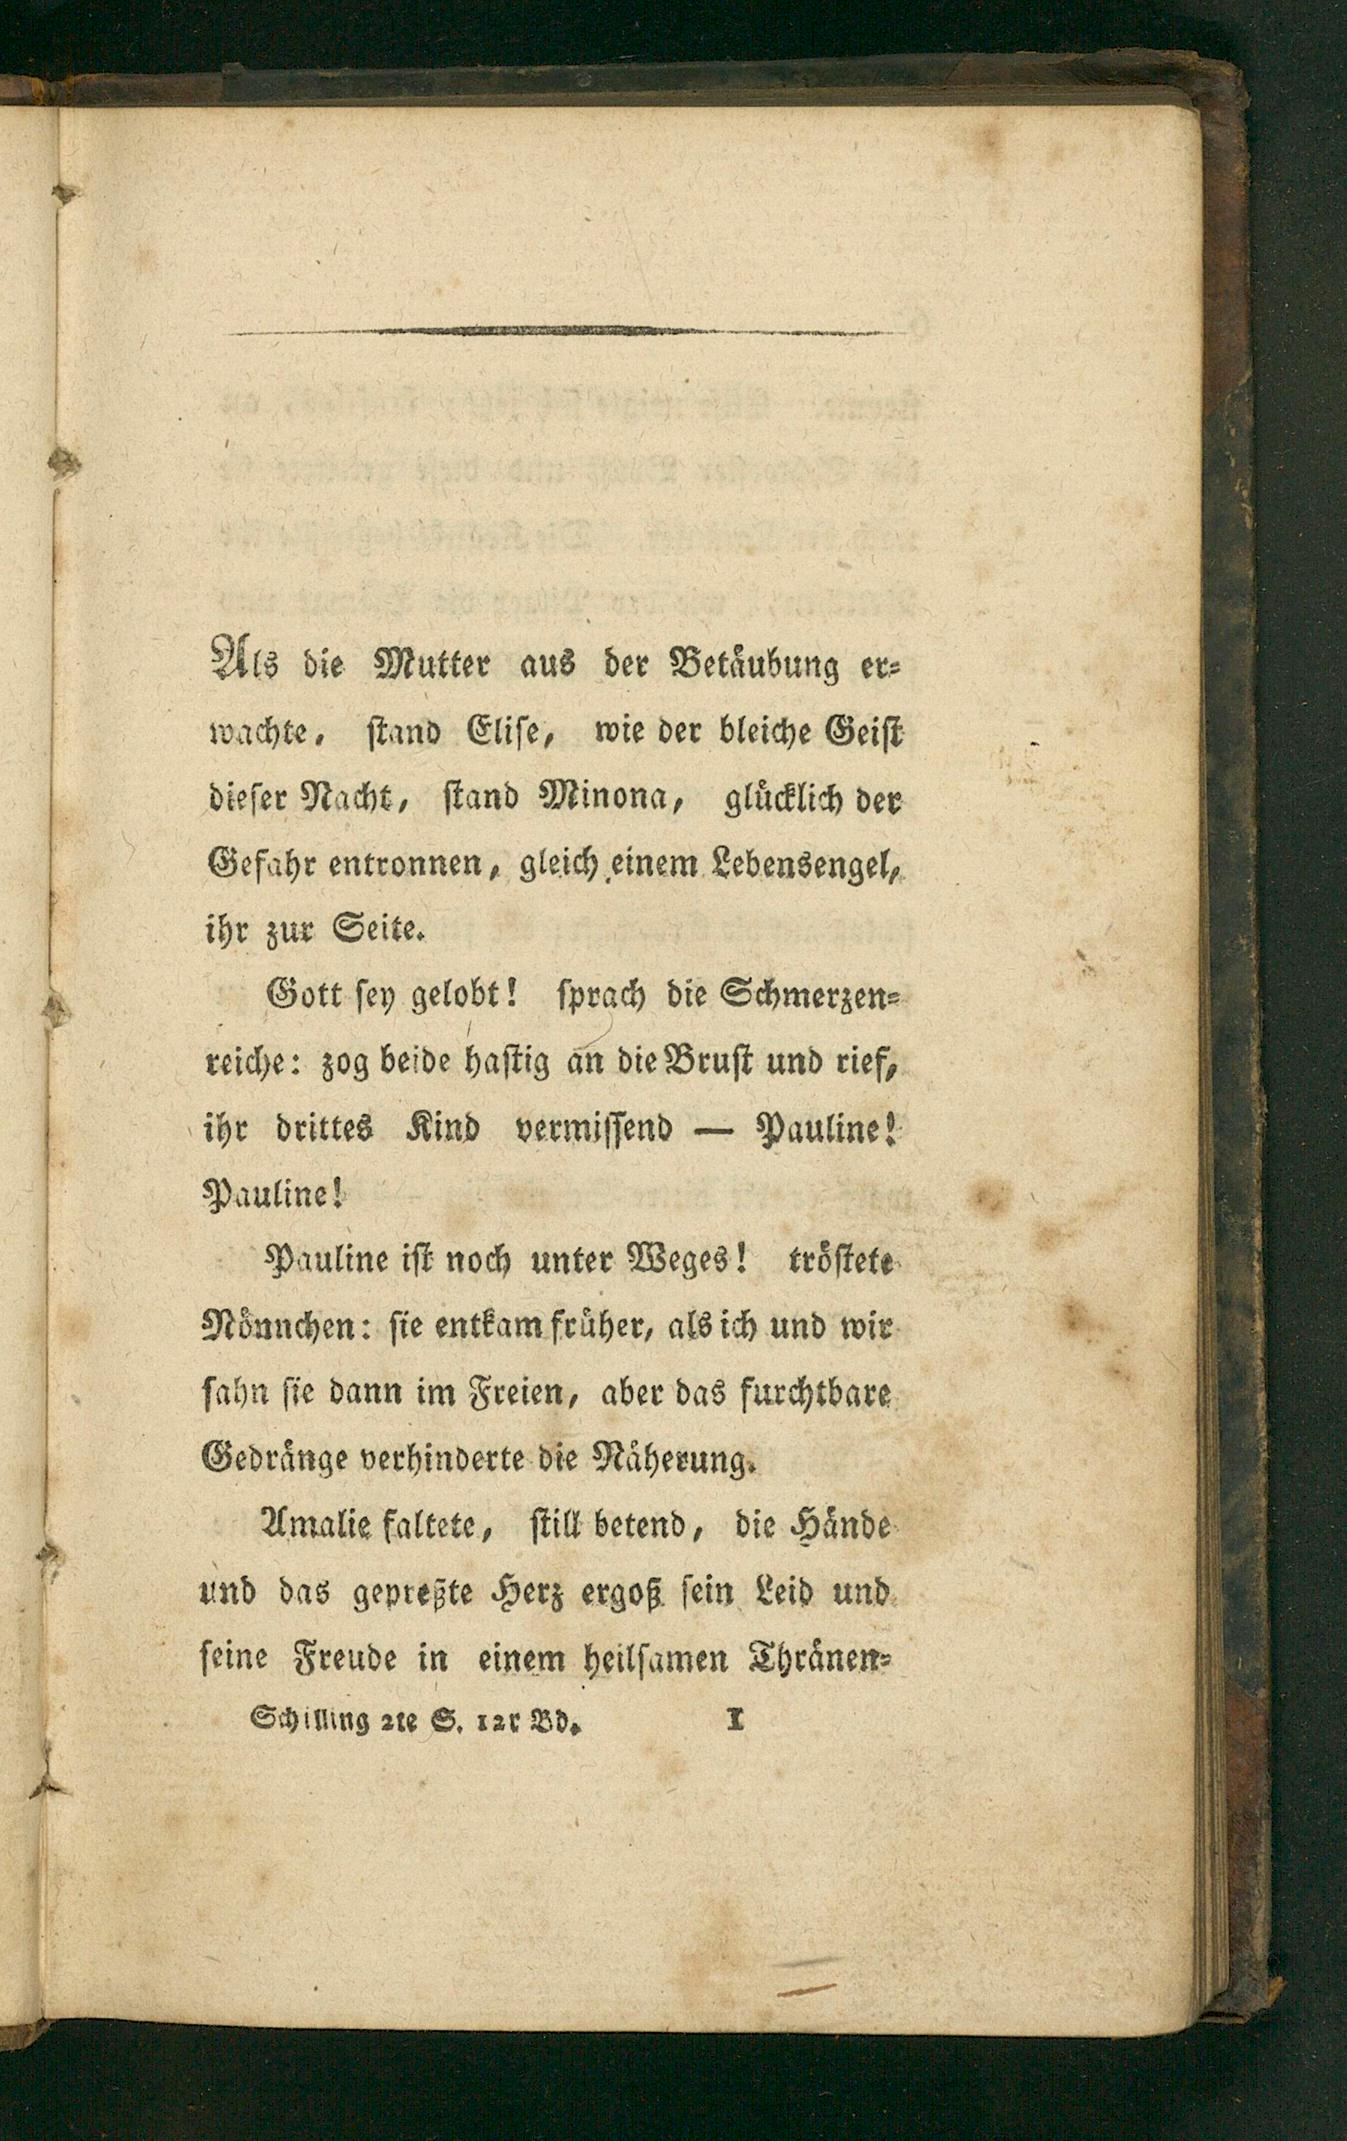 Als die Mutter aus der Betäubung er=
wachte, stand Elise, wie der bleiche Geist
dieser Nacht, stand Minona, glücklich der
Gefahr entronnen, gleich einem Lebensengel,
ihr zur Seite.
Gott sey gelobt! sprach die Schmerzen=
reiche: zog beide hastig an die Brust und rief,
ihr drittes Kind vermissend — Pauline!
Pauline!
Pauline ist noch unter Weges! tröstete
Nönnchen: sie entkam früher, als ich und wir
sahn sie dann im Freien, aber das furchtbare
Gedränge verhinderte die Näherung.
Amalie faltete, still betend, die Hände
und das gepreßte Herz ergoß sein Leid und
seine Freude in einem heilsamen Thränen=
Schilling 2te S. 12r Bd. I